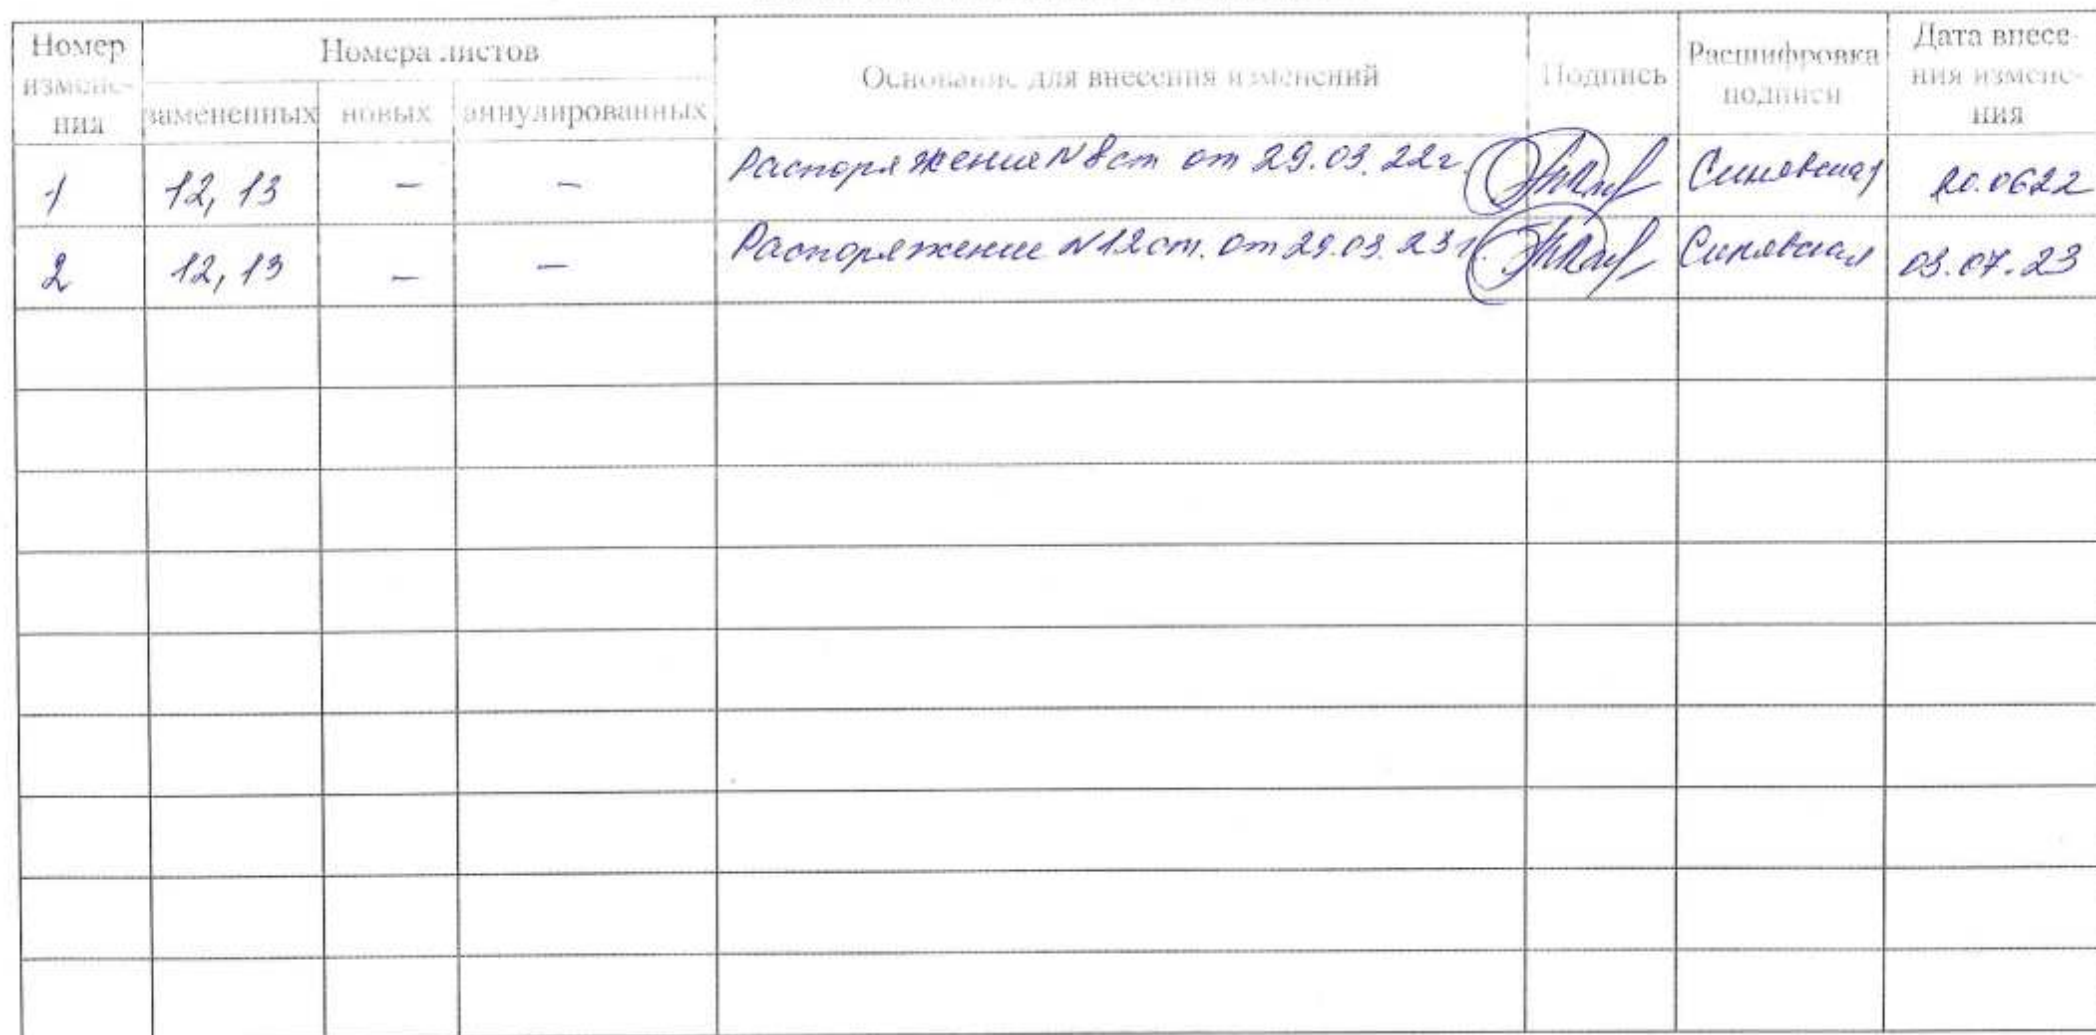 Номер измене- ния
Номера листов
замененных новых аннулированных
Основание для внесения изменений
Подпись
Расшифровка подписи
Дата внесе- ния измене- ния
1 12, 13 – – Распоряжение N 8ст от 29.03.22г. Синявская 20.0622
2 12, 13 – – Распоряжение N 12ст. от 29.03.23г. Синявская 03.07.23